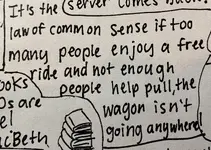 It's the server comes
law of common sense if too
many people enjoy a free
ride and not enough
people help pull, the
wagon isn't
going anywhere!
ooks
Os are
e!
cBeth